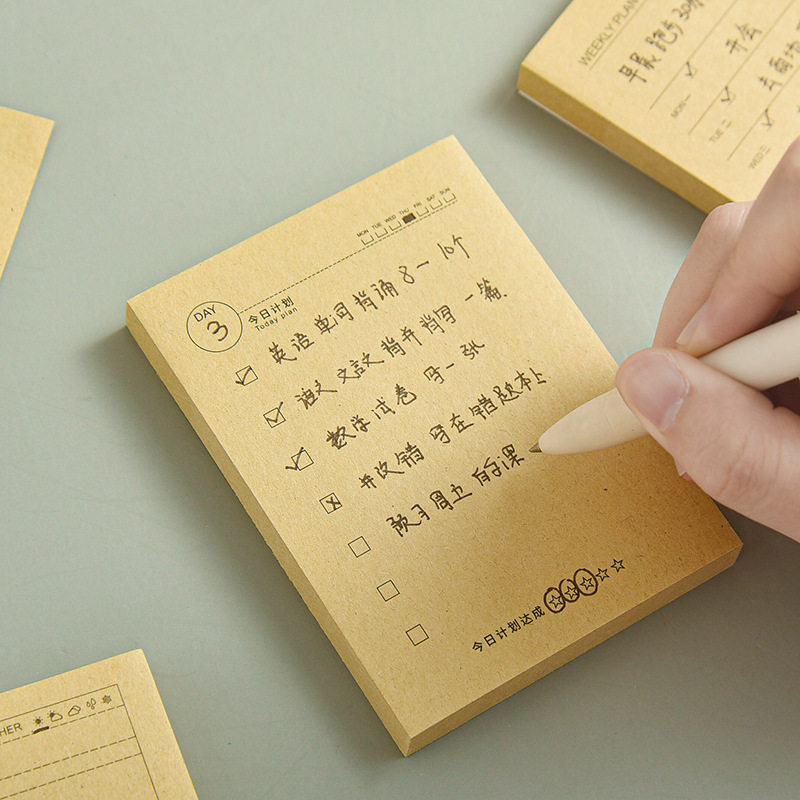 WEEKLY PLAN
早晨 跑步 30
MON 一
开会
TUE 二
WED 三
MON TUE WED THU FRI SAT SUN
DAY
3
今日计划
Today plan
英语 单词背诵 8一10个
语文 文言文 背并背写 一篇
数学试卷 写一张
并改错 写在错题本上
预习周五 的课
今日计划达成
HER